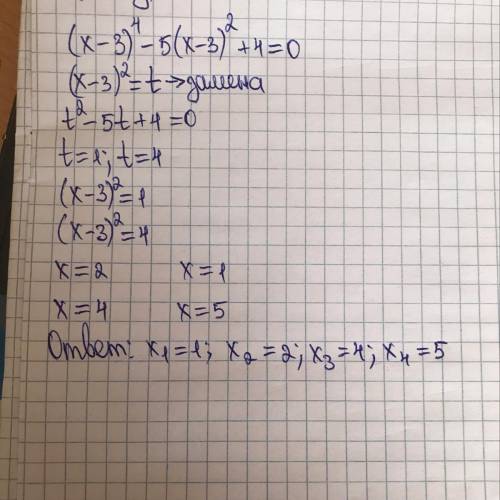 (x-3)⁴-5(x-3)²+4=0
(x-3)²=t→замена
t²-5t+4=0
t=1; t=4
(x-3)²=1
(x-3)²=4
x=2 x=1
x=4 x=5
Ответ: x₁=1; x₂=2; x₃=4; x₄=5